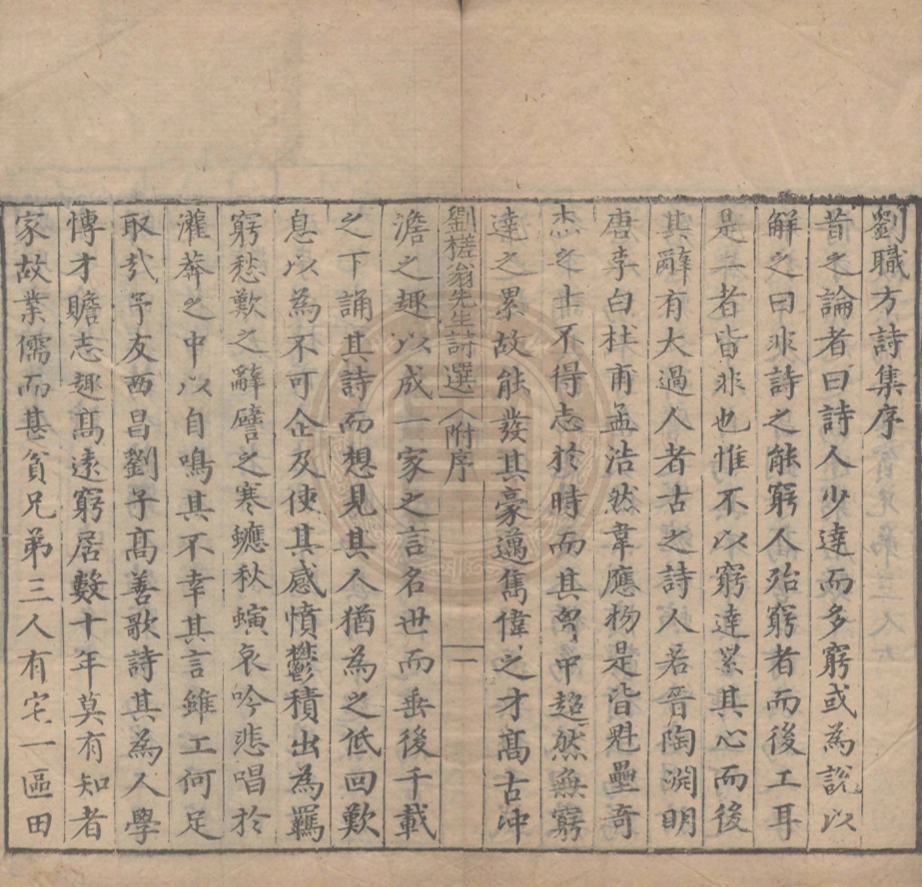 劉職方詩集序
昔之論者曰詩人少達而多窮或為說以
解之曰非詩之能窮人殆窮者而後工耳
是二者皆非也惟不以窮達累其心而後
其辭有大過人者古之詩人若晉陶淵明
唐李白杜甫孟浩然韋應物是皆魁壘奇
杰之士不得志於時而其胷中超然無窮
達之累故能發其豪邁雋偉之才髙古沖
劉槎翁先生詩選 附序 一
澹之趣以成一家之言名世而垂後千載
之下誦其詩而想見其人猶為之低回歎
息以為不可企及使其感憤鬱積出為羈
窮愁歎之辭譬之寒蟪秋螾哀吟悲唱於
灌莽之中以自鳴其不幸其言雖工何足
取㢤予友西昌劉子髙善歌詩其為人學
博才贍志趣髙遠窮居數十年莫有知者
家故業儒而甚貧兄弟三人有宅一區田